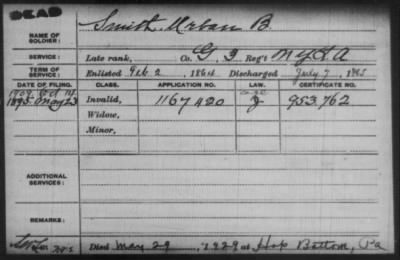 DEAD
NAME OF SOLDIER: Smith, Urban B.
SERVICE: Late rank, Co. G 9 Reg't N.Y.H.A
TERM OF SERVICE: Enlisted Feb 2, 1864 Discharged July 7, 1865
DATE OF FILING. CLASS. APPLICATION NO. LAW. CERTIFICATE NO.
1895 May 23 Invalid, 1167420 953.762
Widow,
Minor,
ADDITIONAL SERVICES:
REMARKS:
Died May 29, 1929 at Hop Bottom, Pa